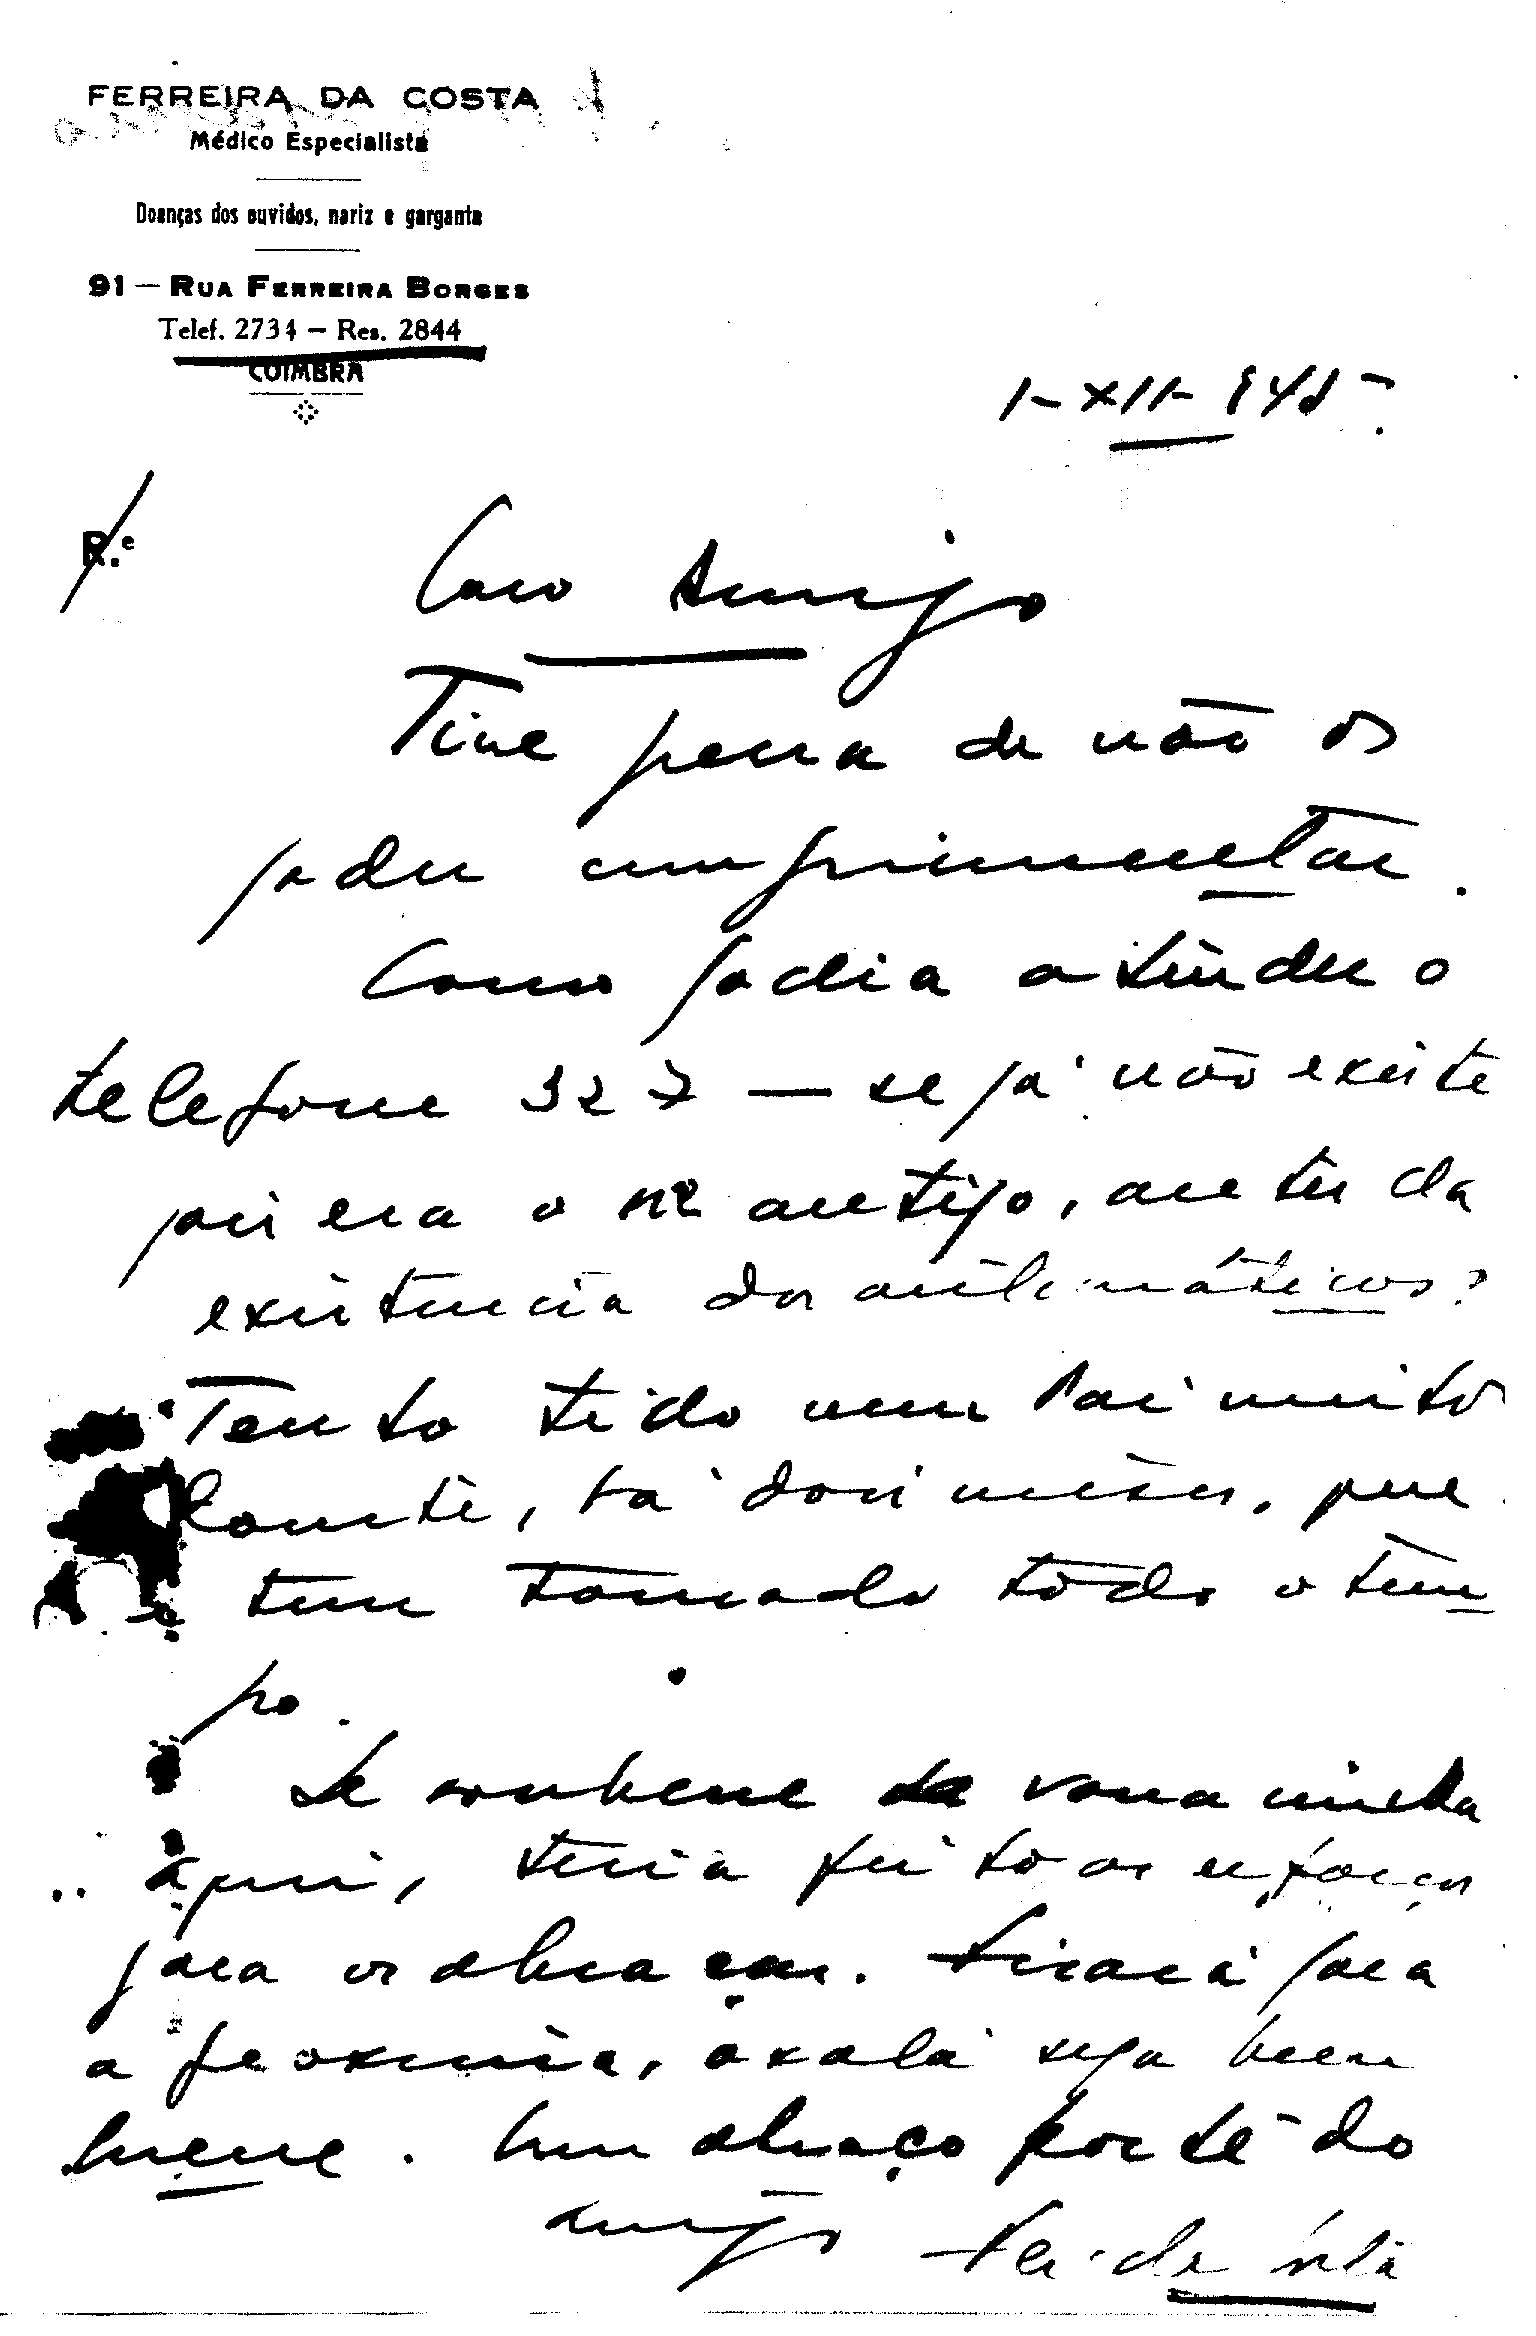 FERREIRA DA COSTA
Médico Especialista
Doenças dos ouvidos, nariz e garganta
91 — RUA FERREIRA BORGES
Telef. 2734 — Res. 2844
COIMBRA
1-XII-945-
R.e
Caro Amigo
Tive pena de não os
poder cumprimentar.
Como podia atender o
telefone 327 — se já não existe
pois era o nº antigo, antes da
existencia dos automáticos?
Tenho tido meu Pai muito
doente, há dois meses, que
me tem tomado todo o tem
po.
Se soubesse da vossa vinda
aqui, teria feito os esforços
para os abraçar. Ficará para
a proxima, oxalá seja bem
breve. Um abraço forte do
amigo Fer. da Costa